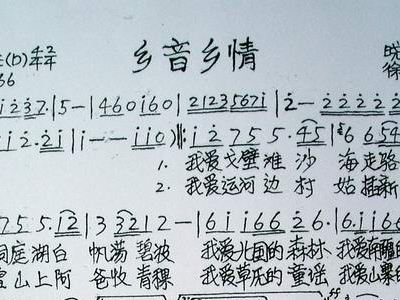 (D) 4/4 2/4 乡音乡情 晓
66 徐
i 2 3 7. | 5 - | 4 6 0 i 6 0 | 2 1 2 3 5 6 7 i | 2 - 2 2 2 2 2
i 2. 2 i | i - - i i 0 ) ‖: i 2 7 5 5. 4 5 | 6 6 5 4
1. 我爱戈壁滩沙 海走骆
2. 我爱运河边村 姑插新
7 5 5. i 2 | 3 3 2 1 2 - | 6 i i 6 6 2 6. | 6. i i 6 6
洞庭湖白 帆荡碧波 我爱北国的森林 我爱南疆的
雪山上阿 爸牧青稞 我爱草氏的童瑶 我爱山寨的